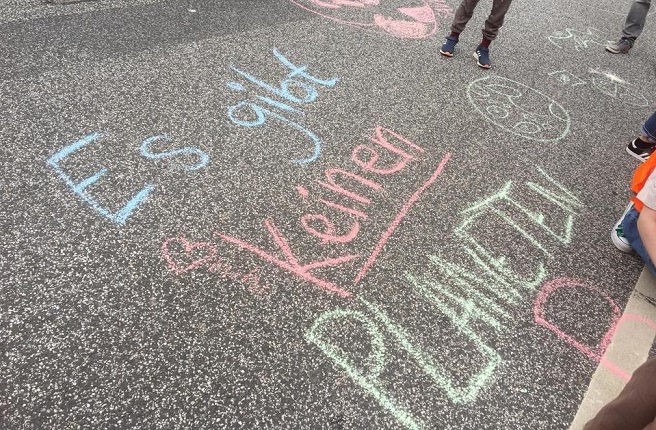 Es gibt
Keinen
PLANETEN
B